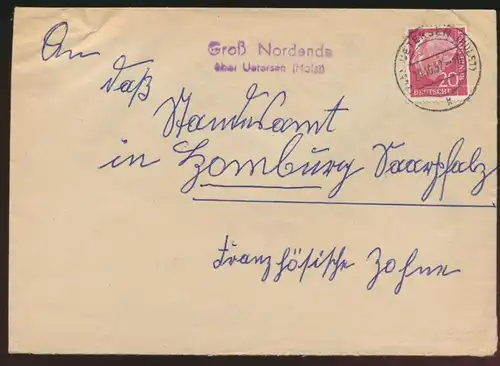 Groß Nordende
über Uetersen (Holst)
UETERSEN (HOLST)
20
DEUTSCHE
An
daß
Standesamt
in Homburg Saarpfalz
Französische Zohne